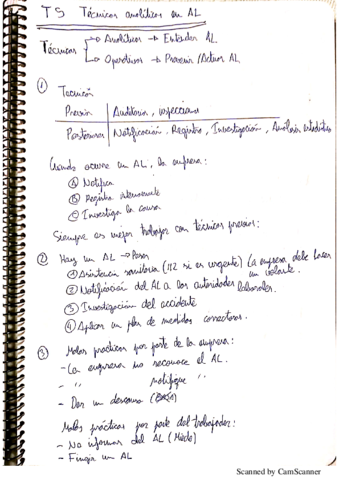 T5 Técnicas analíticas en AL
Técnicas
→ Analíticas → Estudiar AL
→ Operativas → Prevenir /Actuar AL
① Técnicas
Previas | Auditorías, inspecciones
Posteriores | Notificación, Registro, Investigación, Análisis estadístico
Cuando ocurre un AL, la empresa:
Ⓐ Notifica
Ⓑ Registra
Ⓒ Investiga la causa
Siempre es mejor trabajar con técnicas previas:
② Hay un AL → Pasos
① Asistencia sanitaria (112 si es urgente) (La empresa debe hacer un volante.
② Notificación del AL a las autoridades laborales.
③ Investigación del accidente
④ Aplicar un plan de medidas correctoras.
③ Malas prácticas por parte de la empresa:
- La empresa no reconoce el AL.
- " notifique "
- Dar un descanso
Malas prácticas por parte del trabajador:
- No informar del AL (Miedo)
- Fingir un AL
Scanned by CamScanner